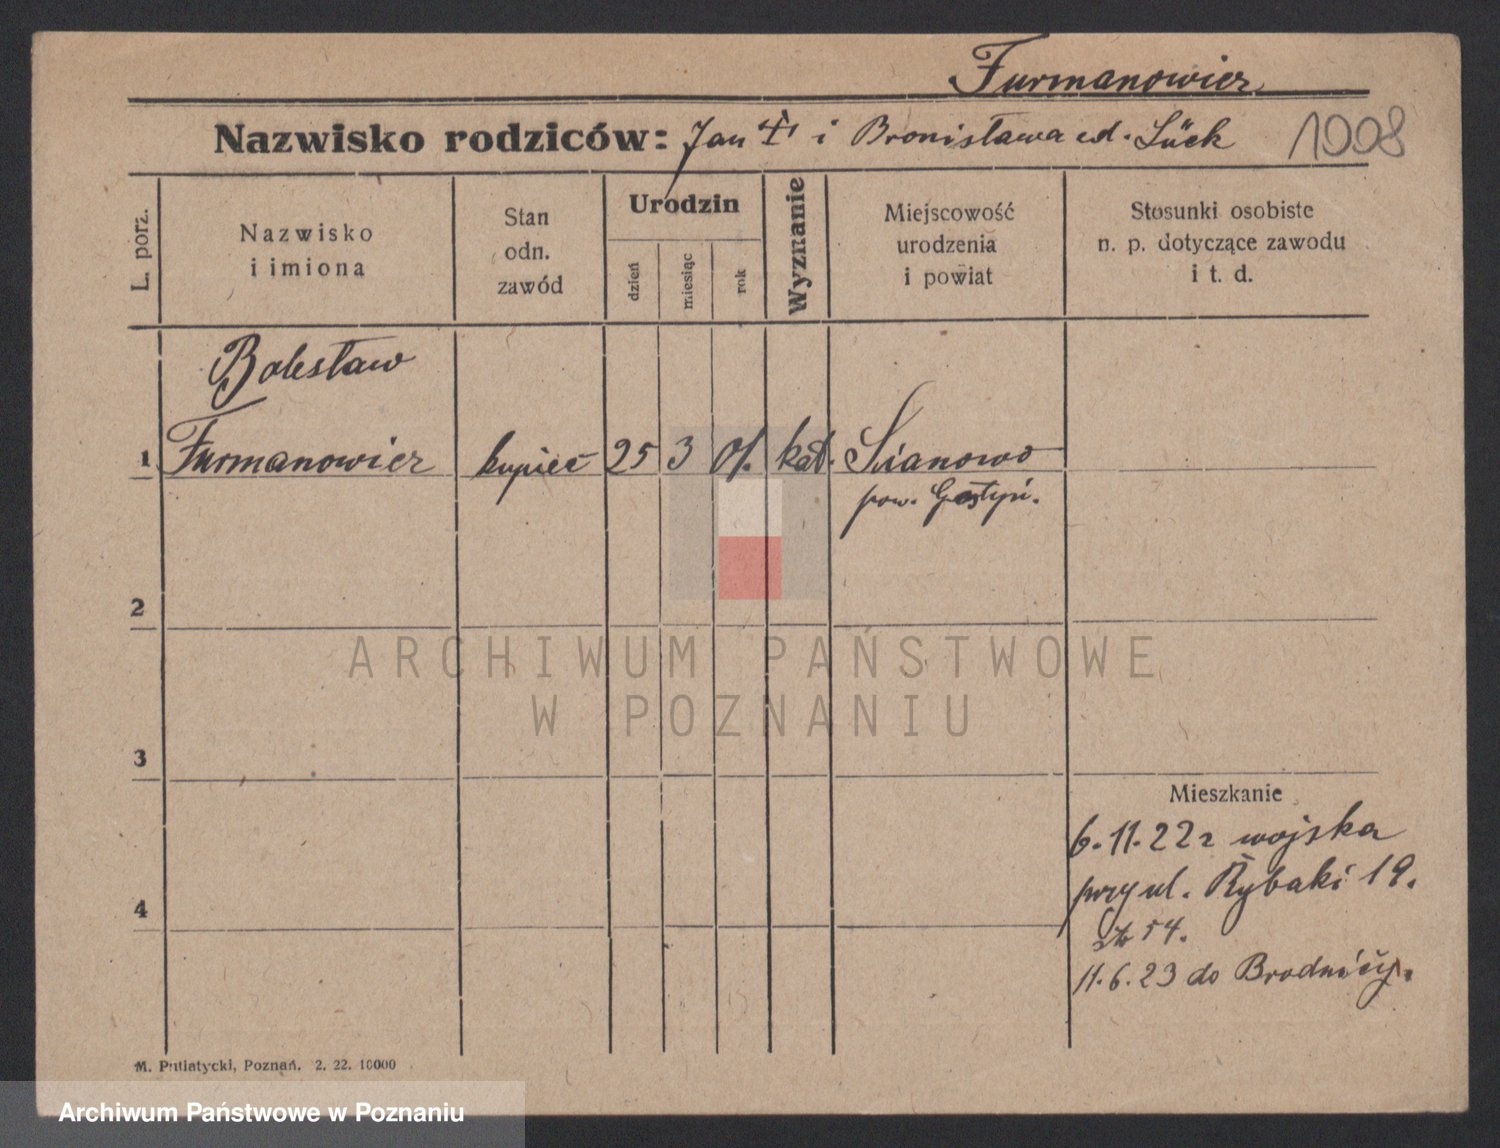 Furmanowicz
Nazwisko rodziców: Jan † i Bronisława Lück
1008
L. porz.
Nazwisko
i imiona
Stan
odn.
zawód
Urodzin
dzień
miesiąc
rok
Wyznanie
Miejscowość
urodzenia
i powiat
Stosunki osobiste
n. p. dotyczące zawodu
i t. d.
Bolesław
1 Furmanowicz kupiec 25 3 01. kat.
pow. Gostyń.
2
ARCHIWUM PAŃSTWOWE
W POZNANIU
3
Mieszkanie
6.11.22 z wojska
przy ul. Rybaki 19.
54.
4
11.6.23 do Brodnicy.
M. Putiatycki, Poznań. 2. 22. 10000
Archiwum Państwowe w Poznaniu